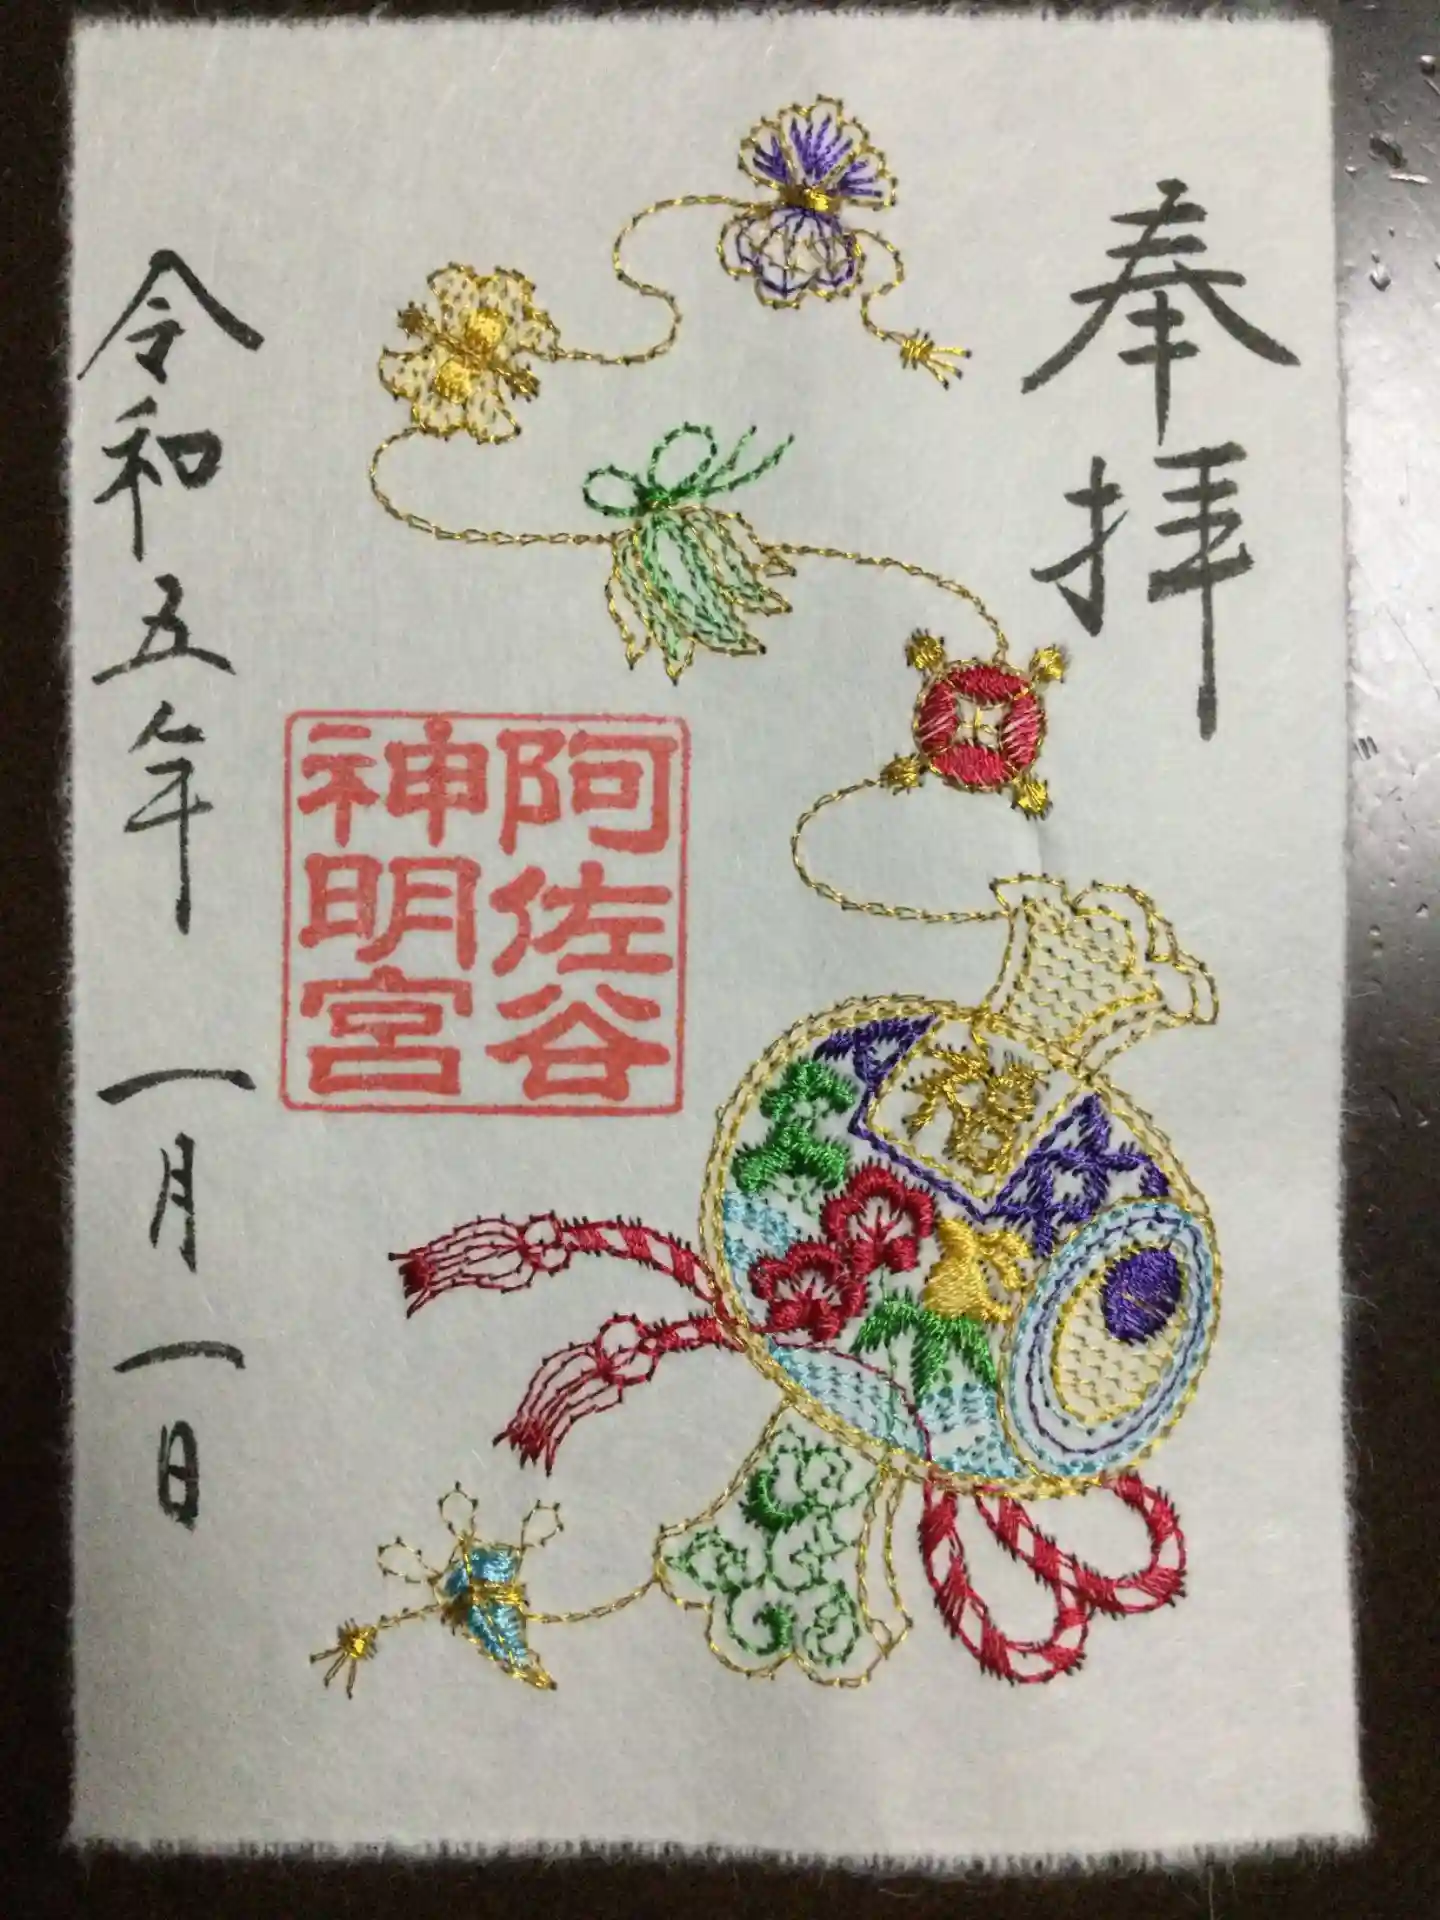 奉拝
福
阿佐谷
神明宮
令和五年一月一日